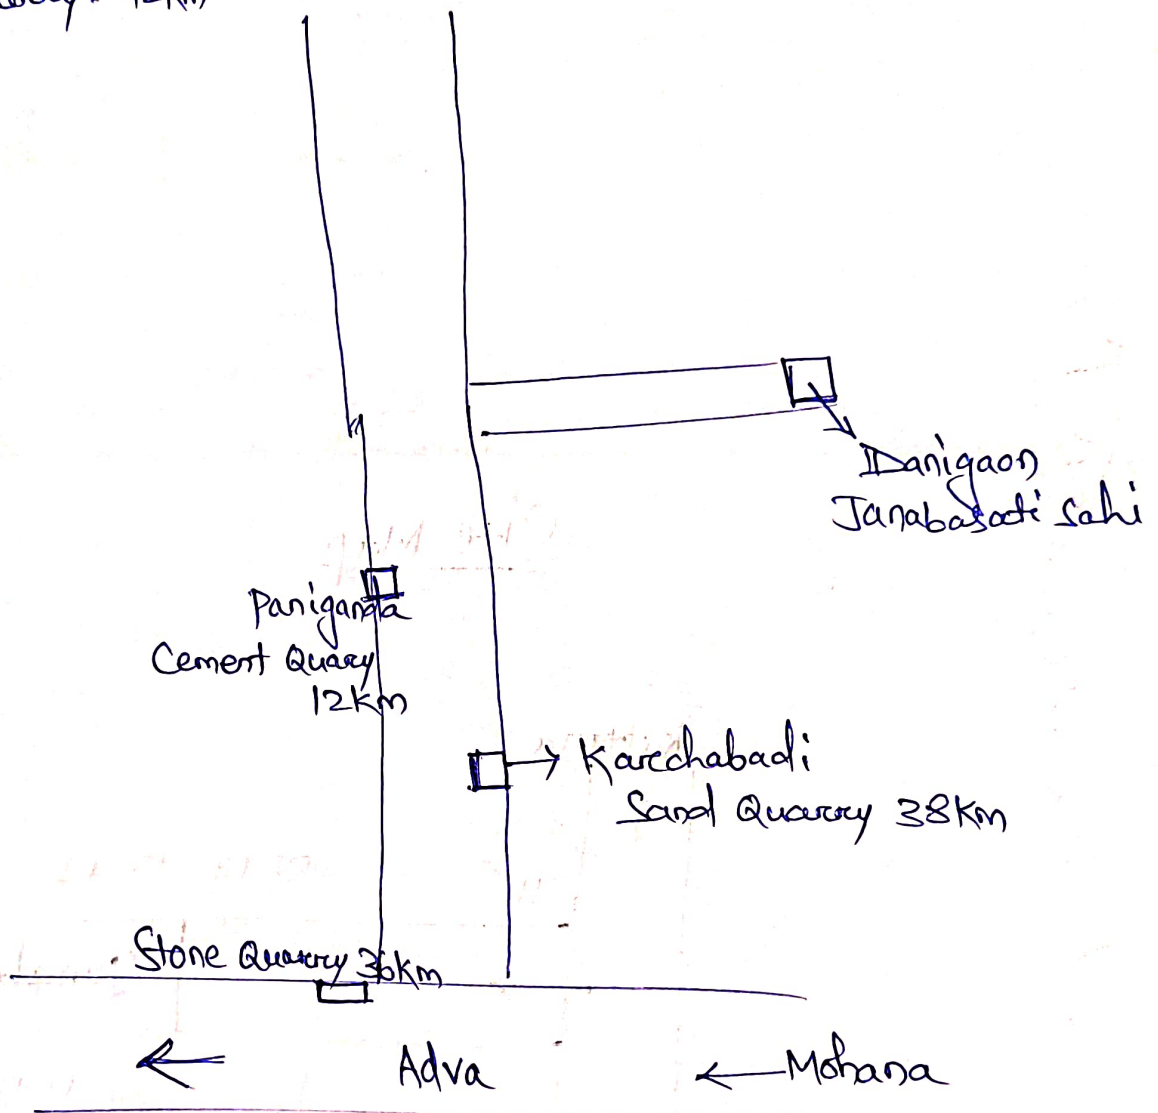 12Km
Danigaon
Janabasati Sahi
Paniganda
Cement Quary
12Km
Karchabadi
Sand Quarry 38Km
Stone Quarry 36Km
Adva
Mohana